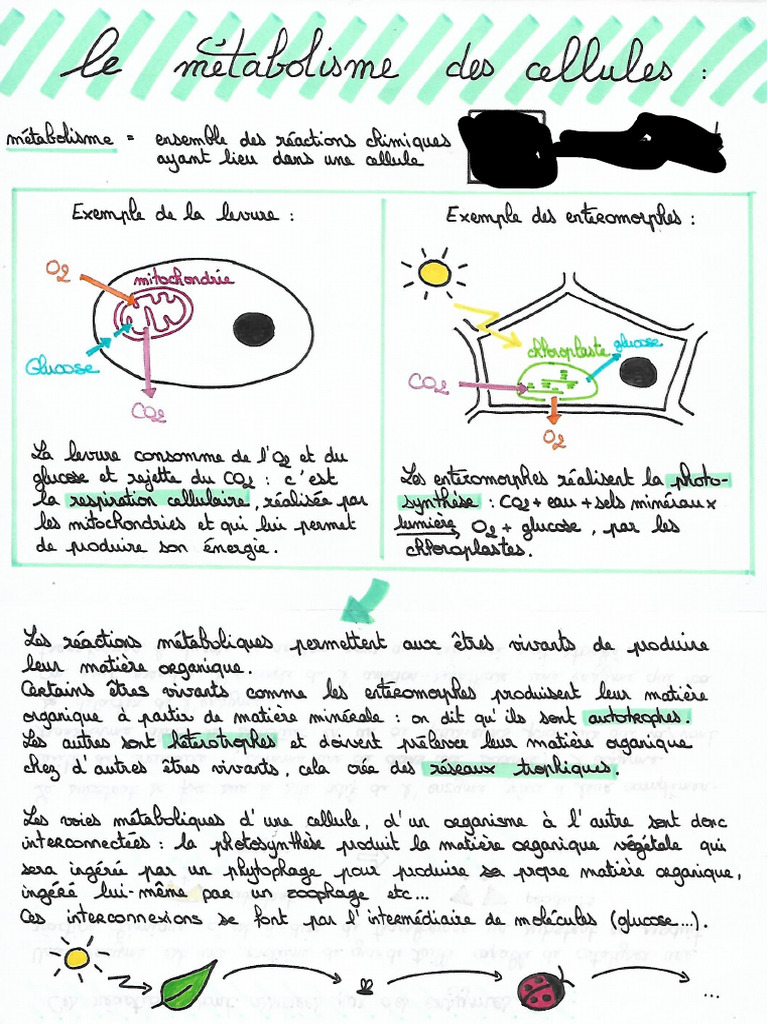 Le métabolisme des cellules :
métabolisme = ensemble des réactions chimiques
ayant lieu dans une cellule
Exemple de la levure :
O2
mitochondrie
Glucose
CO2
La levure consomme de l'O2 et du
glucose et rejette du CO2 : c'est
la respiration cellulaire, réalisée par
les mitochondries et qui lui permet
de produire son énergie.
Exemple des entéromorphes :
chloroplaste
glucose
CO2
O2
Les entéromorphes réalisent la photo-
synthèse : CO2 + eau + sels minéraux
lumière O2 + glucose, par les
chloroplastes.
Les réactions métaboliques permettent aux êtres vivants de produire
leur matière organique.
Certains êtres vivants comme les entéromorphes produisent leur matière
organique à partir de matière minérale : on dit qu'ils sont autotrophes.
Les autres sont hétérotrophes et doivent prélever leur matière organique
chez d'autres êtres vivants, cela crée des réseaux trophiques.
Les voies métaboliques d'une cellule, d'un organisme à l'autre sont donc
interconnectées : la photosynthèse produit la matière organique végétale qui
sera ingérée par un phytophage pour produire sa propre matière organique,
ingéré lui-même par un zoophage etc...
Ces interconnexions se font par l'intermédiaire de molécules (glucose...).
...